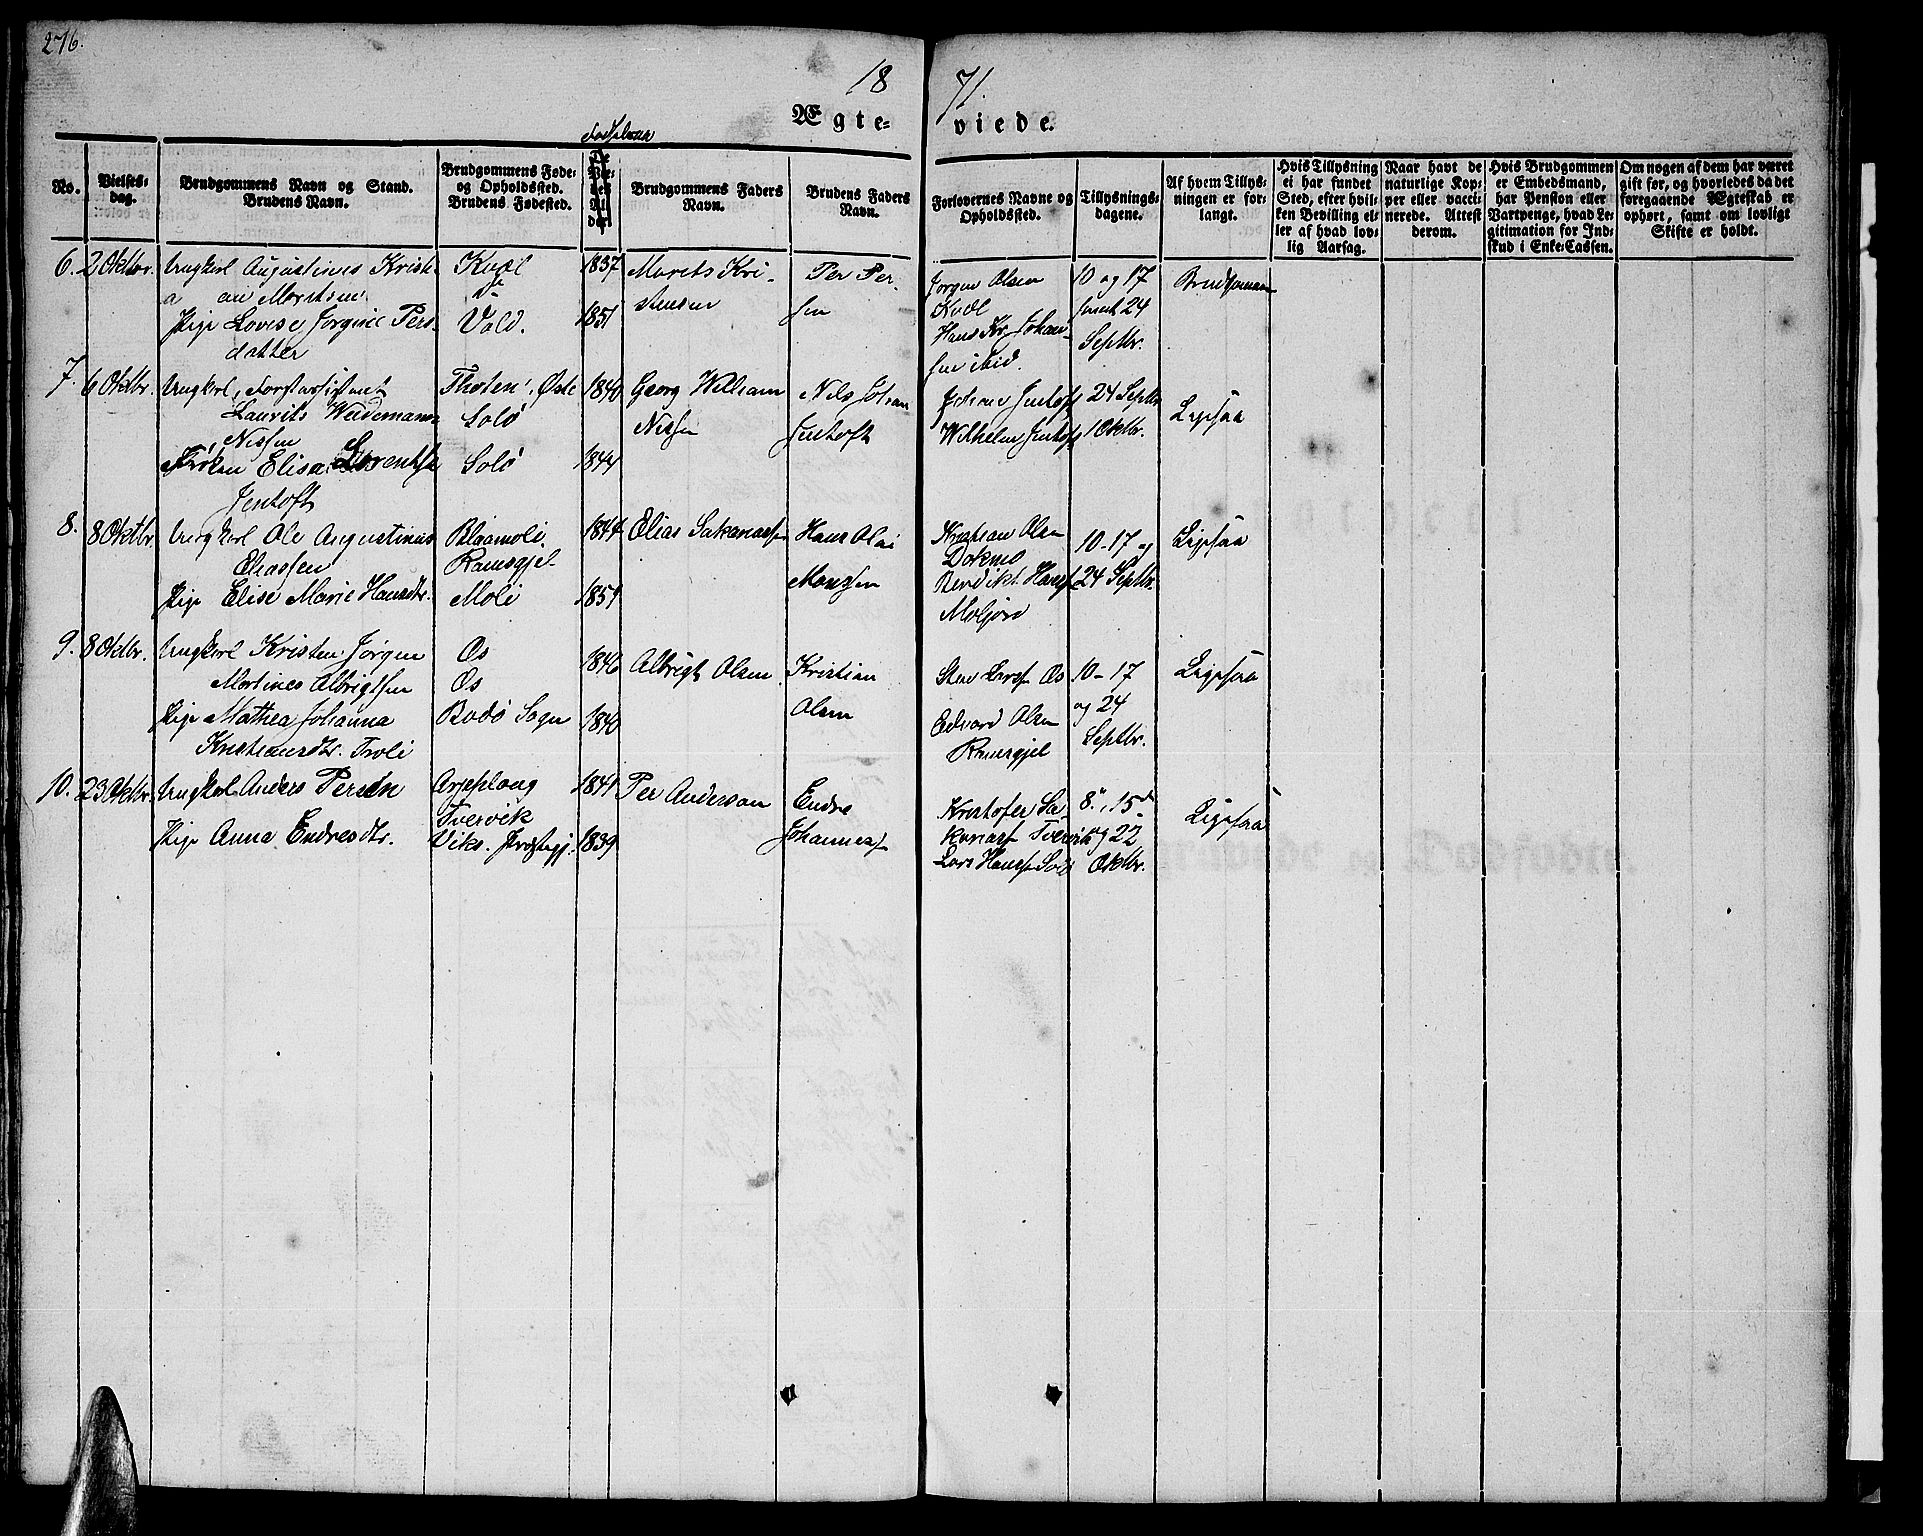 276.
18 71.
Ægte= viede.
Fødselsaar
No.
Vielses-
dag.
Brudgommens Navn og Stand.
Brudens Navn.
Brudgommens Føde-
og Opholdssted.
Brudens Fødested.
Brudgommens Faders
Navn.
Brudens Faders
Navn.
Forlovernes Navne og
Opholdssted.
Tillysnings-
dagene.
Af hvem Tillys-
ningen er for-
langt.
Hvis Tillysning
ei har fundet
Sted, efter hvil-
ken Bevilling el-
ler af hvad lov-
lig Aarsag.
Naar havt de
naturlige Kop-
per eller vacci-
nerede. Attest
derom.
Hvis Brudgommen
er Embedsmand,
har Pension eller
Vartpenge, hvad Le-
gitimation for Ind-
skud i Enke-Cassen.
Om nogen af dem har været
gift før, og hvorledes da det
foregaaende Ægteskab er
ophørt, samt om lovligt
Skifte er holdt.
6. 2 Oktbr. Ungkarl Augustinus Kristi-
an Moritsen
Pige Lovise Jørgine Pers-
datter
Kvæl
Vold.
1837
1851
Morits Kri-
stensen
Per Per-
sen
Jørgen Olsen
Kvæl
Hans Kr. Johan-
sen ibid.
10 og 17
samt 24
Septbr.
Brudgommen
7. 6 Oktbr. Ungkarl, Forstassistent
Laurits Weidemann
Nissen
Frøken Elisa Lorentse
Jentoft
Thoten, Øste
Solø
Solø
1840
1844
Georg William
Nissen
Nils Johan
Jentoft
Johan Jentoft
Wilhelm Jentoft
24 Septbr
1 Oktbr.
Ligesaa
8. 8 Oktbr. Ungkarl Ole Augustinus
Eliassen
Pige Elise Marie Hansdtr.
Blaamoli.
Ramsgjel
Moli
1844
1851
Elias Sakariassen
Hans Olai
Monssen
Kristian Olsen
Dokmo
Benedikt Hansen
Moljord
10-17 og
24 Septbr.
Ligesaa
9. 8 Oktbr. Ungkarl Kristen Jørgen
Martines Albrigtsen
Pige Mathea Johanna
Kristiansdtr. Troli
Os
Os
Bodø Sogn
1846
1840
Albrigt Olsen
Kristian
Olsen
Sten Larsen Os
Edvard Olsen
Ramsgjel
10-17
og 24
Septbr.
Ligesaa
10. 23 Oktbr. Ungkarl Anders Persen
Pige Anna Endresdtr.
Arjeplong
Tvervik
Viks. Præstegj.
1841
1839
Per Anderson
Endre
Johannesen
Kristofer Sa-
kariasen Tvervik
Lars Hansen Solø
8de, 15de
og 22
Oktbr.
Ligesaa